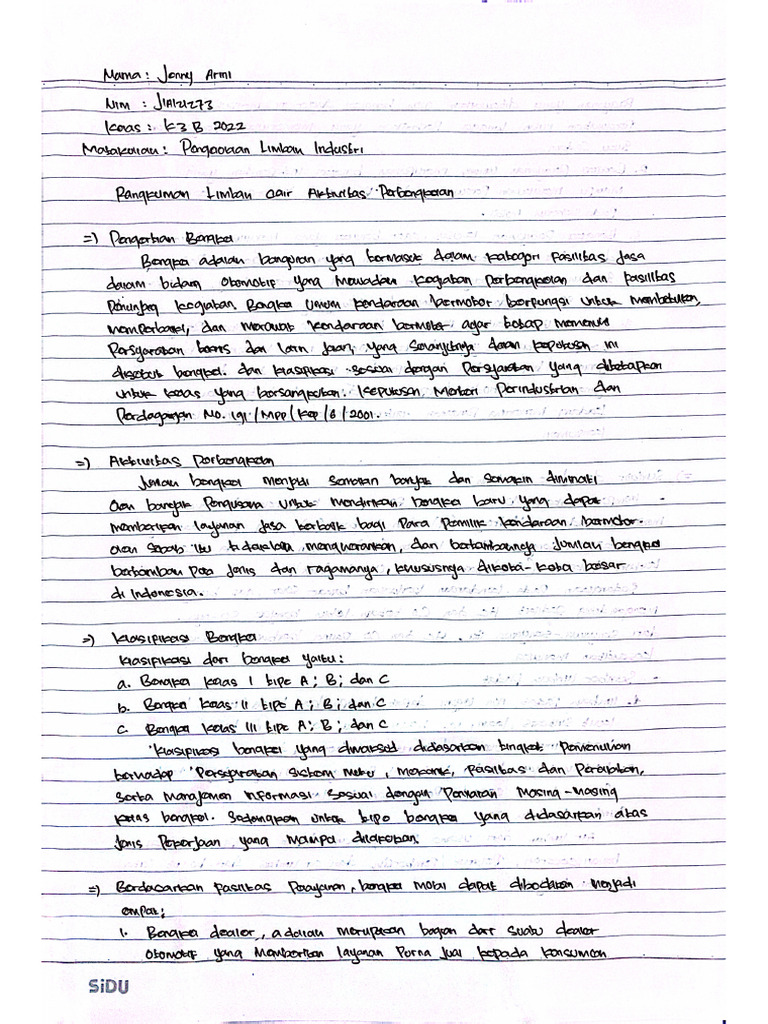 Nama : Jenny Armi
Nim : J1A121273
Kelas : K3 B 2022
Matakuliah : Pengelolaan Limbah Industri
Rangkuman Limbah Cair Aktivitas Perbengkelan
=) Pengertian Bengkel
Bengkel adalah bangunan yang termasuk dalam kategori fasilitas jasa
dalam bidang otomotif yang mewadahi kegiatan perbengkelan dan fasilitas
penunjang kegiatan. Bengkel umum kendaraan bermotor berfungsi untuk membetulkan,
memperbaiki, dan merawat kendaraan bermotor agar tetap memenuhi
persyaratan teknis dan laik jalan, yang selanjutnya dalam keputusan ini
disebut bengkel. dan klasifikasi sesuai dengan persyaratan yang ditetapkan
untuk kelas yang bersangkutan. Keputusan Menteri Perindustrian dan
Perdagangan No. 191/MPP/Kep/6/2001.
=) Aktivitas Perbengkelan
Jumlah bengkel menjadi semakin banyak dan semakin diminati
oleh banyak pengusaha untuk mendirikan bengkel baru yang dapat
memberikan layanan jasa terbaik bagi para pemilik kendaraan bermotor.
oleh sebab itu tidaklah mengherankan, dan bertambahnya jumlah bengkel
bertambah pula jenis dan ragamanya, khususnya dikota-kota besar
di Indonesia.
=) Klasifikasi Bengkel
Klasifikasi dari bengkel yaitu :
a. Bengkel kelas I tipe A ; B ; dan C
b. Bengkel kelas II tipe A ; B ; dan C
c. Bengkel kelas III tipe A ; B ; dan C
Klasifikasi bengkel yang dimaksud didasarkan tingkat pemenuhan
terhadap persyaratan sistem mutu, mekanik, fasilitas dan peralatan,
serta manajemen informasi sesuai dengan masing-masing
kelas bengkel. Sedangkan untuk tipe bengkel yang didasarkan atas
jenis pekerjaan yang mampu dilakukan.
=) Berdasarkan fasilitas pelayanan, bengkel mobil dapat dibedakan menjadi
empat;
1. Bengkel dealer, adalah merupakan bagian dari suatu dealer
otomotif yang memberikan layanan purna jual kepada konsumen
SiDU